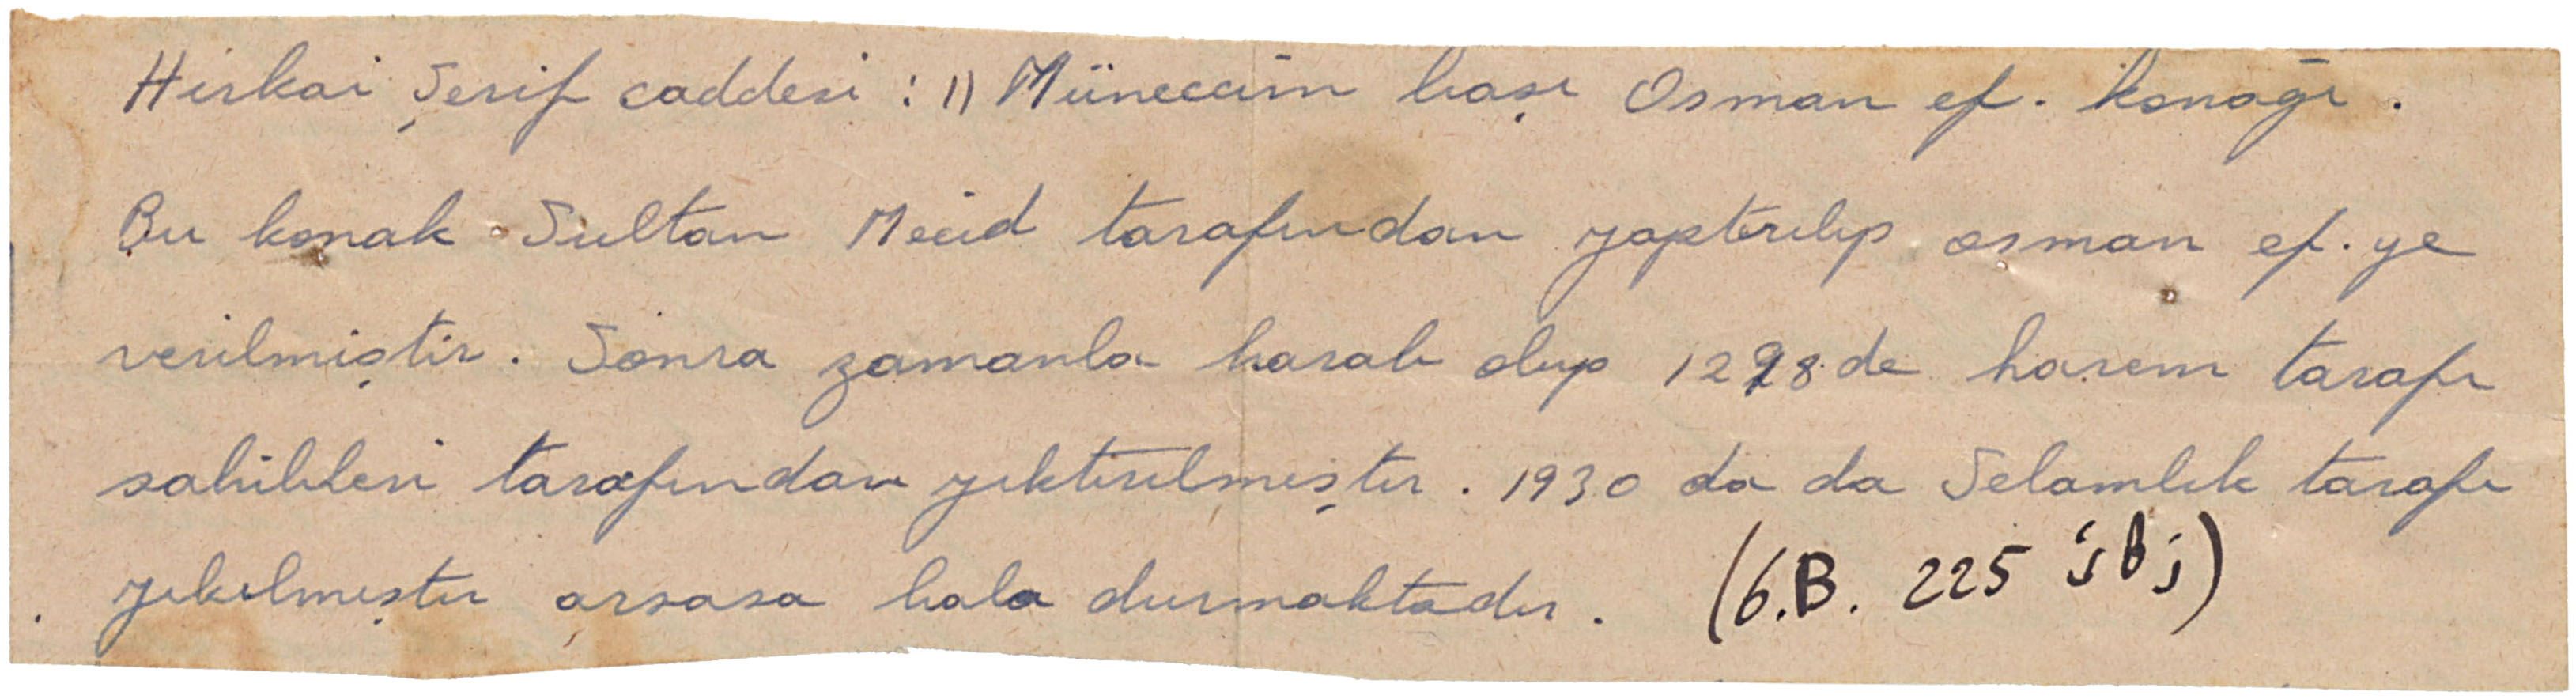 Hirkai Şerif caddesi : 1) Müneccim başı Osman ef. konağı.
Bu konak Sultan Mecid tarafından yaptırılıp osman ef. ye
verilmiştir. Sonra zamanla harab olup 1298 de harem tarafı
sahibleri tarafından yıktırılmıştır. 1930 da da Selamlık tarafı
yıkılmıştır arsası hala durmaktadır. (6.B. 225